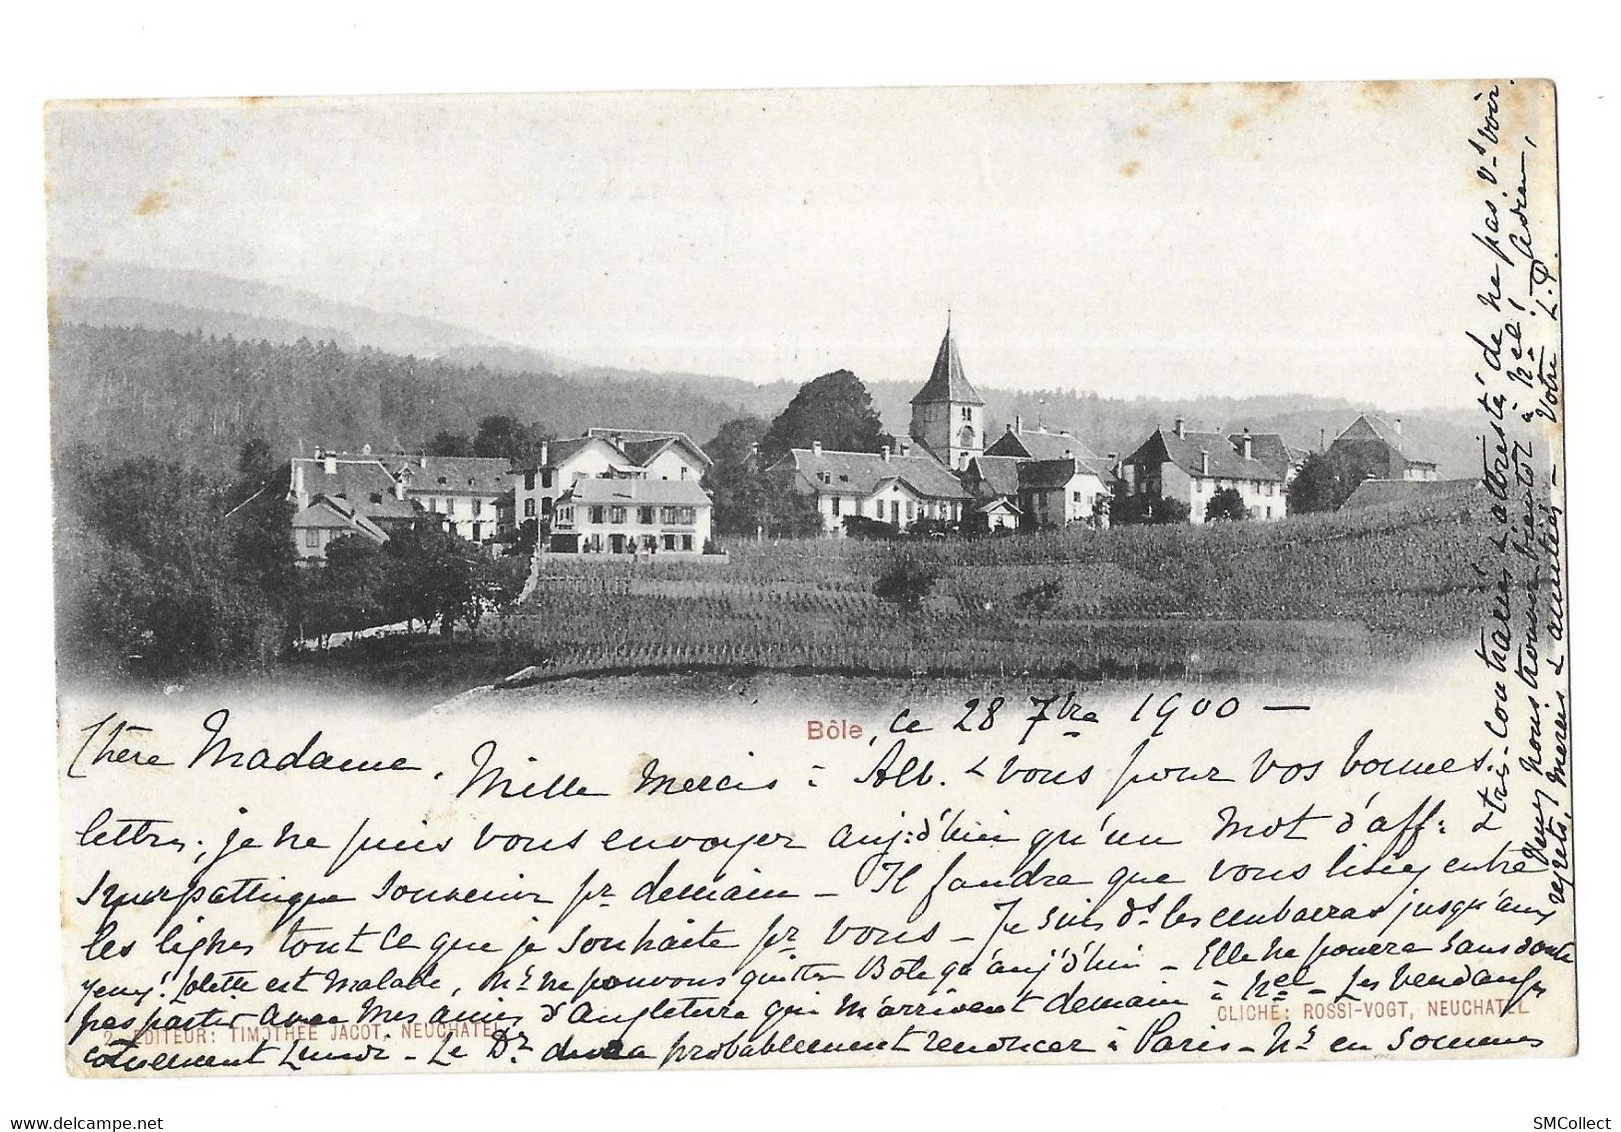 Bôle, ce 28 7bre 1900 —
Chère Madame,
Mille mercis à Alb. & vous pour vos bonnes
lettres; je ne puis vous envoyer auj: d'hui qu'un mot d'aff: &
sympathique souvenir pr demain — Il faudra que vous lisiez entre
les lignes tout ce que je souhaite pr vous — Je suis ds les embarras jusqu'aux
yeux! Colette est malade, ns ne pouvons quitter Bôle qu'auj'd'hui — Elle ne pourra sans doute
pas partir avec mes amies d'Angleterre qui m'arrivent demain à Nel — Les vendanges
commencent lundi — Le Dr devra probablement renoncer à Paris — Ns en sommes
très-contrariés & attristés de ne pas vs voir.
Venez nous trouver bientôt à Nel! Adieu,
regrets, mercis & amitiés — Votre L.P.
2. EDITEUR: TIMOTHÉE JACOT, NEUCHATEL
CLICHÉ: ROSSI-VOGT, NEUCHATEL
SMCollect